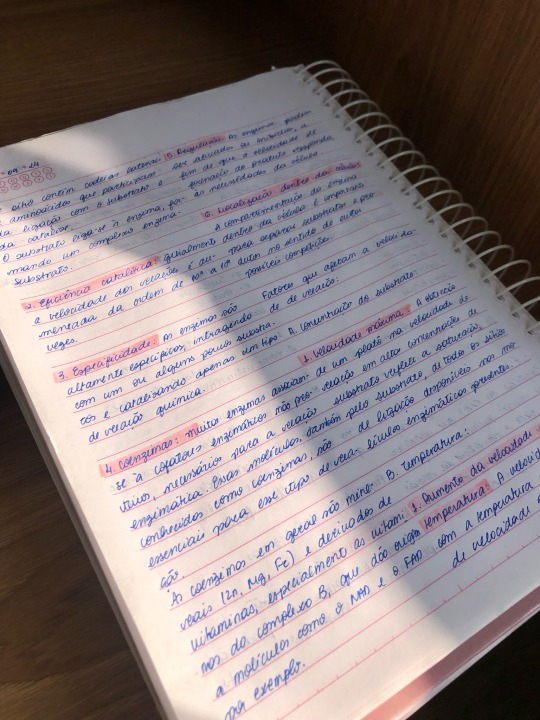 09 24
sítio contém cadeias laterais
aminoácidos que participam
da ligação com o substrato e
da catálise.
O substrato liga-se à enzima, for-
mando um complexo enzima-
substrato.
2. Eficiência catalítica: geralmente
a velocidade das reações é au-
mentada da ordem de
vezes.
3. Especificidade: As enzimas são
altamente específicas, interagindo
com um ou alguns poucos substra-
tos e catalisando apenas um tipo
de reação química.
4. Coenzimas: Muitas enzimas associam-
se a cofatores enzimáticos não pro-
teicos, necessários para a reação
enzimática. Essas moléculas, também
conhecidas como coenzimas, são
essenciais para esse tipo de rea-
ção.
As coenzimas em geral são mine-
rais (Zn, Mg, Fe) e derivados de
vitaminas, especialmente as vitami-
nas do complexo B, que dão origem
a moléculas como o NAD e o FAD,
por exemplo.
5. Regulação: As enzimas podem
ser ativadas ou inibidas, a
fim de que a velocidade de
formação do produto responda
às necessidades da célula.
6. Localização dentro das células
A compartimentação da enzima
dentro da célula é importante
para separar substratos e pro-
dutos no sentido de evitar
possíveis competições.
Fatores que afetam a velocida-
de de reação:
A. Concentração do substrato:
1. Velocidade máxima: A obtenção
de um platô na velocidade de
reação em altas concentrações de
substrato reflete a saturação,
pelo substrato, de todos os sítios
de ligação disponíveis nas mo-
léculas enzimáticas presentes.
B. Temperatura:
1. Aumento da velocidade
temperatura: A velocid
com a temperatura
de velocidade